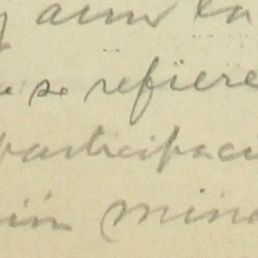 y aun en
se refiere
participaci
ión mino